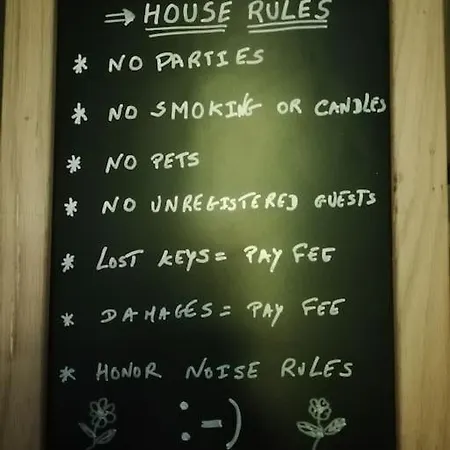 ⇒ HOUSE RULES
* NO PARTIES
* NO SMOKING OR CANDLES
* NO PETS
* NO UNREGISTERED GUESTS
* LOST KEYS = PAY FEE
* DAMAGES = PAY FEE
* HONOR NOISE RULES
:-)